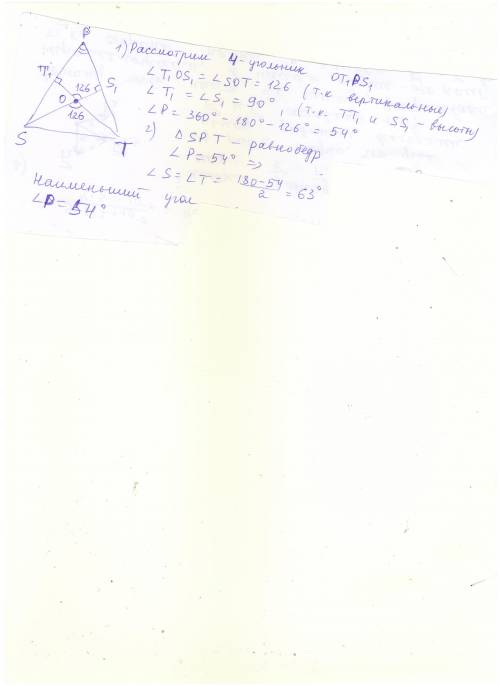 P
T₁
S₁
126
O
126
S
T
1) Рассмотрим 4-угольник OT₁PS₁
∠T₁OS₁ = ∠SOT = 126 (т.к вертикальные)
∠T₁ = ∠S₁ = 90°, (т.к. TT₁ и SS₁ - высоты)
∠P = 360° - 180° - 126° = 54°
2) △SPT - равнобедр
∠P = 54° ⇒
∠S = ∠T = 180-54/2 = 63°
Наименьший угол
∠P = 54°